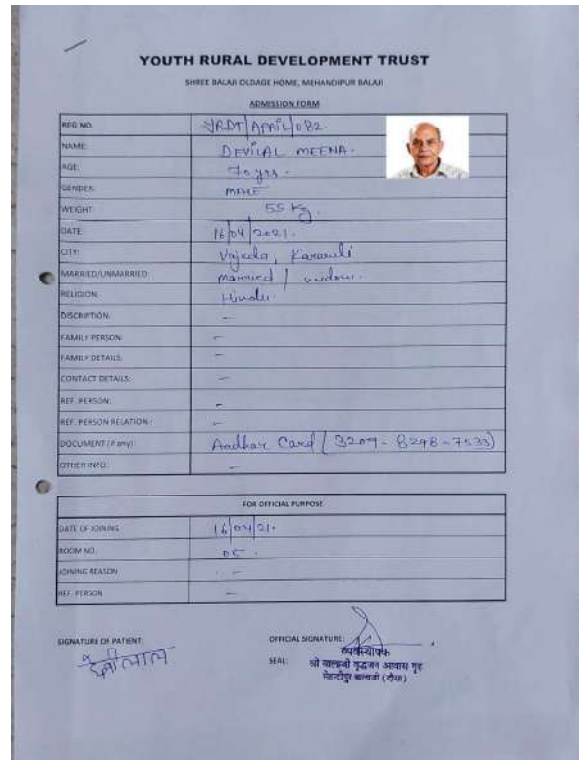 YOUTH RURAL DEVELOPMENT TRUST
SHREE BALAJI OLDAGE HOME, MEHANDIPUR BALAJI
ADMISSION FORM
REG NO. YRDT/APRIL/082.
NAME: DEVILAL MEENA.
AGE: 70 yrs.
GENDER: MALE
WEIGHT: 55 Kg.
DATE: 16/04/2021.
CITY: Vajeda, Karauli
MARRIED/UNMARRIED: married / widow.
RELIGION: Hindu.
DISCRIPTION: –
FAMILY PERSON: –
FAMILY DETAILS: –
CONTACT DETAILS: –
REF. PERSON: –
REF. PERSON RELATION: –
DOCUMENT (if any): Aadhar Card (3209-8298-7533)
OTHER INFO.: –
FOR OFFICIAL PURPOSE
DATE OF JOINING 16/04/21.
ROOM NO. 05.
JOINING REASON –
REF. PERSON –
SIGNATURE OF PATIENT: OFFICIAL SIGNATURE:
देवीलाल
व्यवस्थापक
SEAL: श्री बालाजी वृद्धजन आवास गृह
मेहन्दीपुर बालाजी (दौसा)